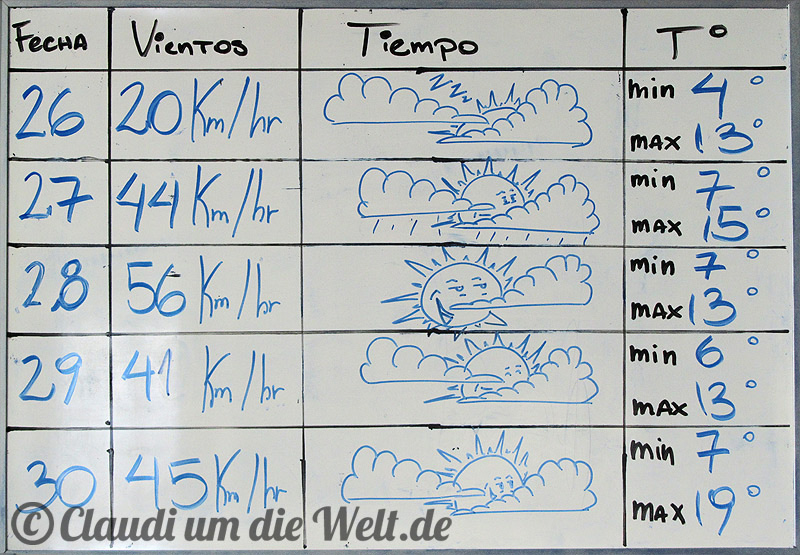 Fecha Vientos Tiempo T°
26 20 Km/hr min 4°
max 13°
27 44 Km/hr min 7°
max 15°
28 56 Km/hr min 7°
max 13°
29 41 Km/hr min 6°
max 13°
30 45 Km/hr min 7°
max 19°
© Claudi um die Welt.de